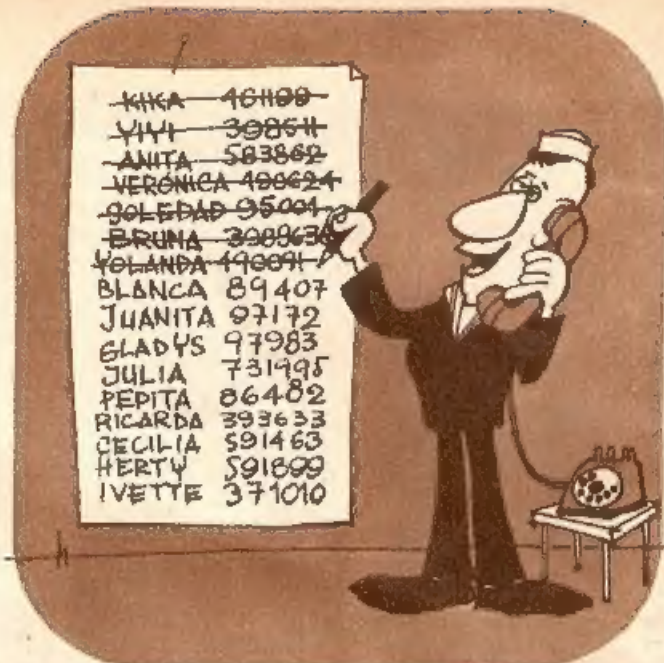 KIKA
YIYI
ANITA 583862
VERONICA
SOLEDAD
BRUNA
YOLANDA
BLANCA 89407
JUANITA 97172
GLADYS 97983
JULIA 731995
PEPITA 86482
RICARDA 393633
CECILIA 591463
HERTY 591899
IVETTE 371010